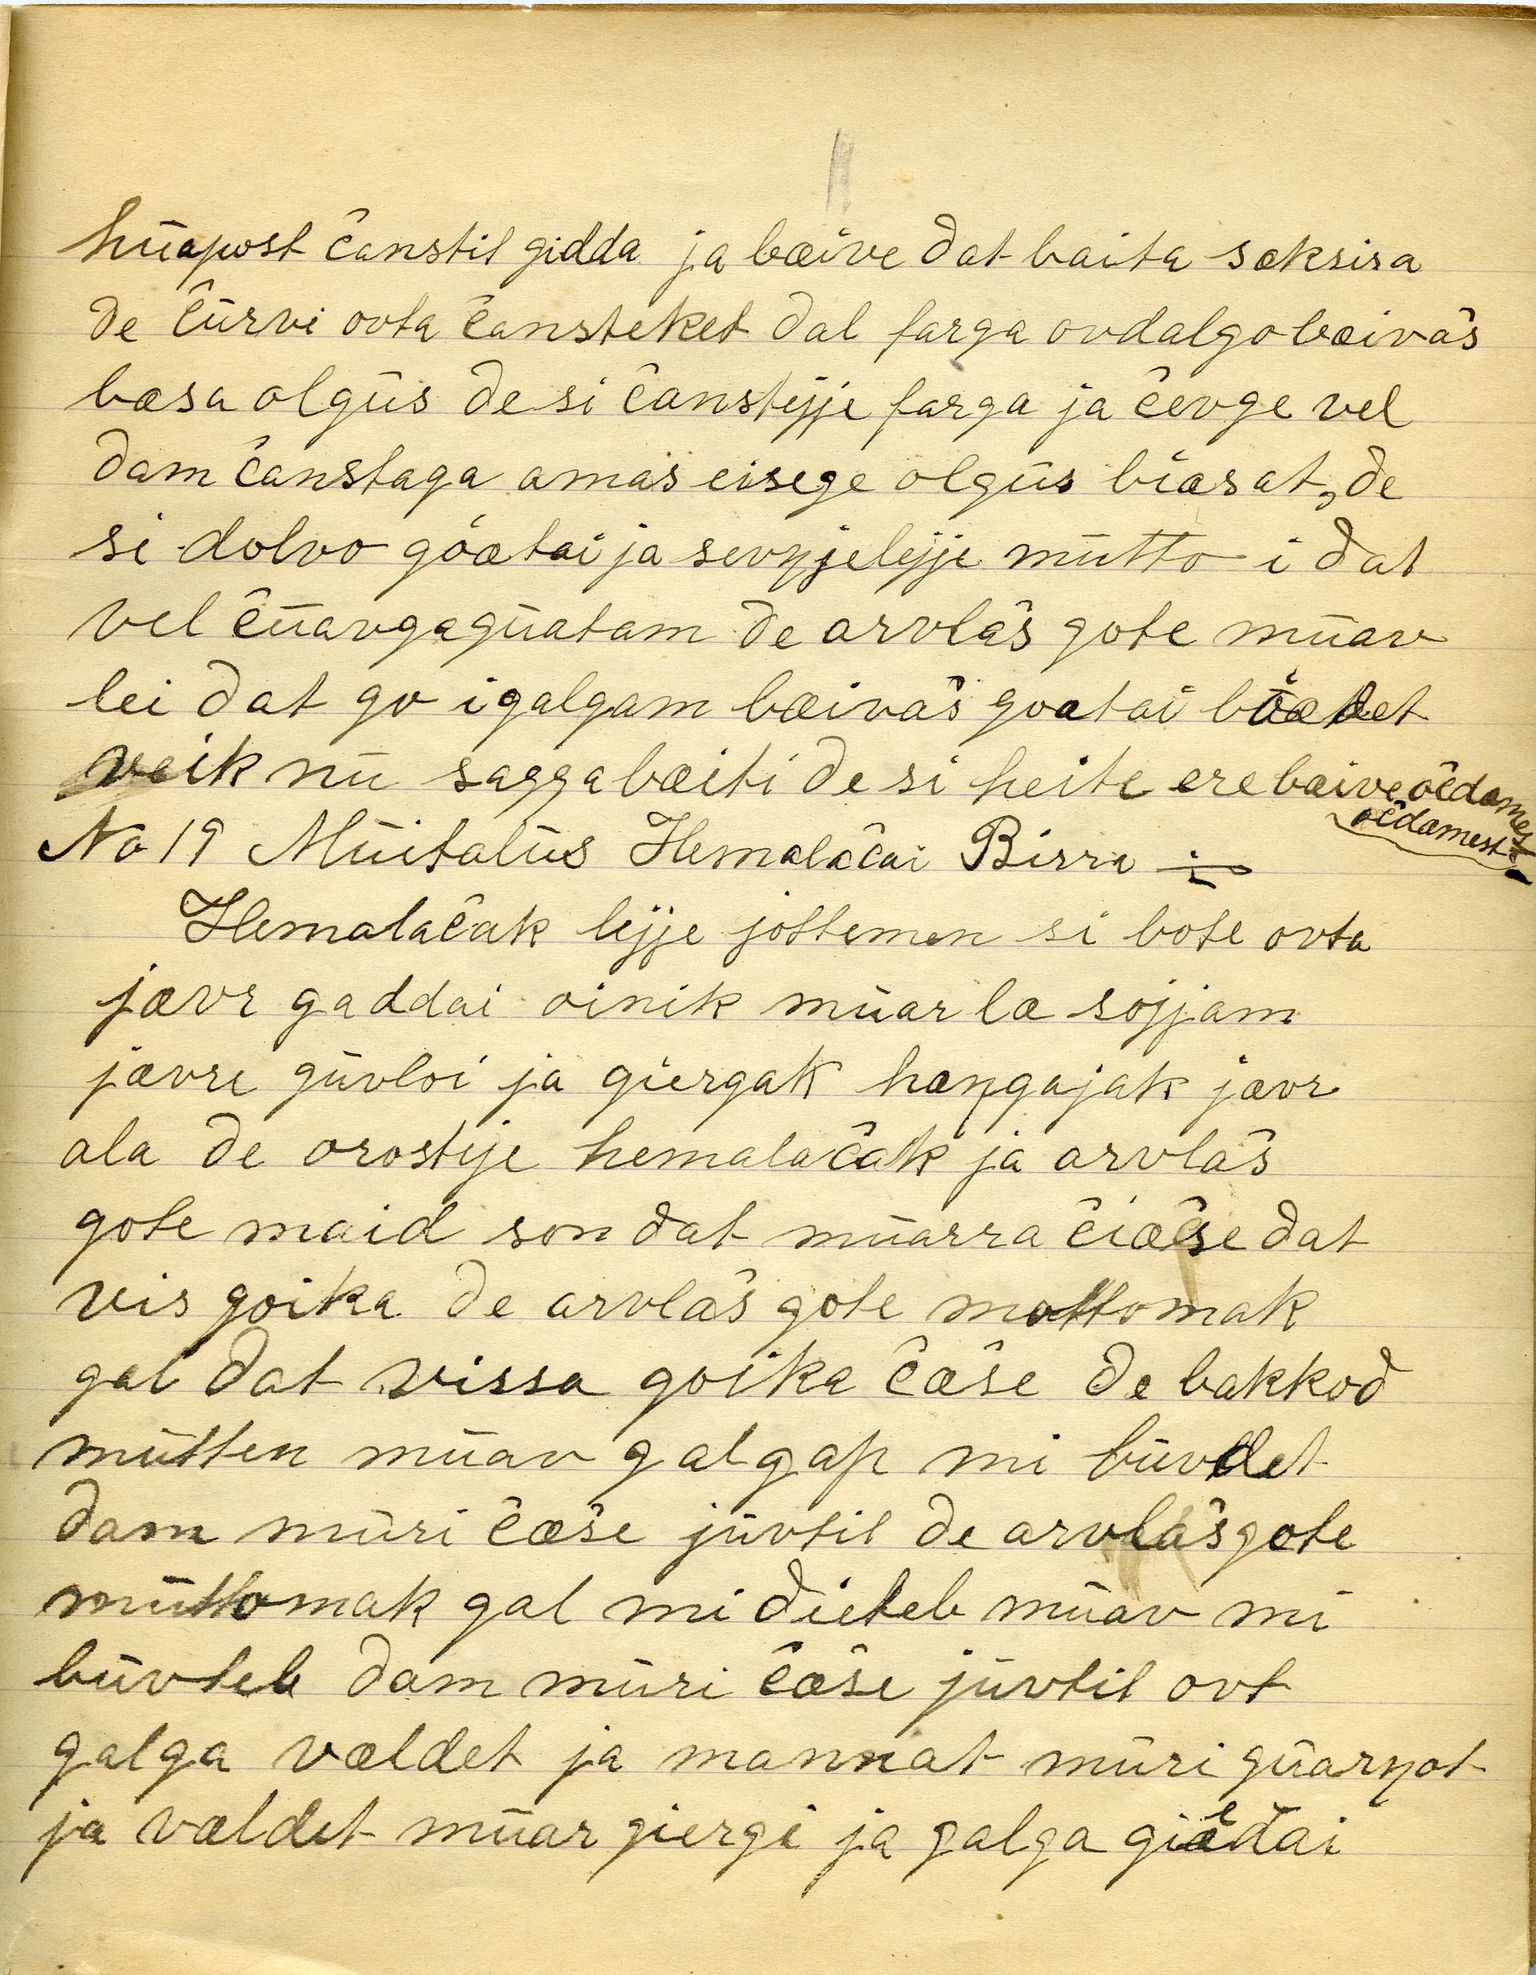 hūapost čanstil gidda ja bæive dat baita sæksira
de čūrvi ovta čansteket dal farga ovdalgo bæivaš
bæsa olgūs de si čanstijje farga ja čevge vel
dam čanstaga amas eisege olgūs bïæsat, de
si dolvo göætai ja sevŋjelijje mūtto i dat
vel čūavgagūatam de arvlaš gote mūav
lei dat go i galgam bæivaš goatai böædet
veik nū sagga bæiti de si heite ere bæive očdamest
očdamest
No 19 Mūitalūs Hemalačai Birra
Hemalačak lijje jottemen si bote ovta
jævr gaddai oinik mūar læ sojjam
jævre gūvloi ja giergak hæŋgajak jævr
ala de orostije hemalačak ja arvlaš
gote maid son dat mūarra čiæše dat
vis goika de arvlaš gote mottomak
gal dat vissa goika čæše de bakkod
mūtten mūav galgap mi būvdet
dam mūri čæše jūvtit de arvlaš gote
mūttomak gal mi dieteb mūav mi
būvteb dam mūri čæše jūvtit ovt
galga vældet ja mannat mūri gūarŋot
ja vældet mūar giergi ja galga giëdai